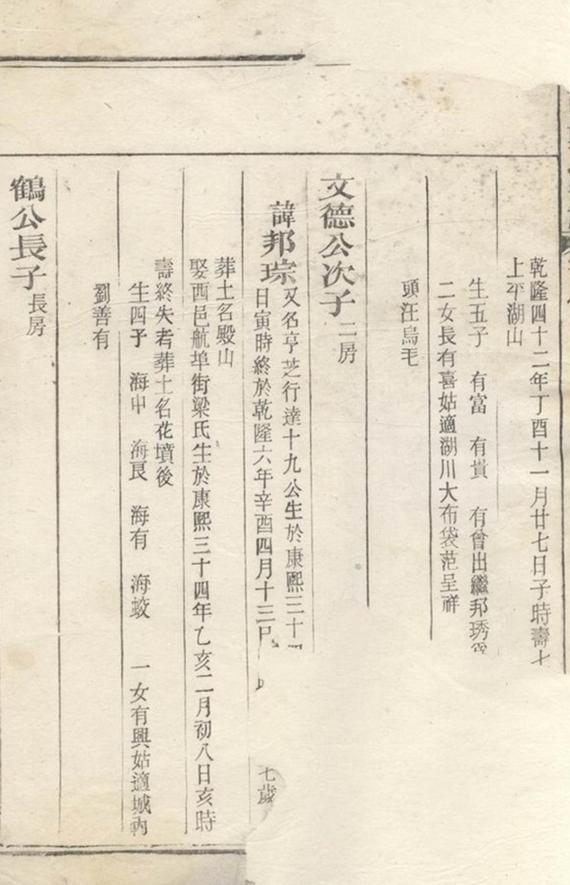 乾隆四十二年丁酉十一月廿七日子時壽七
上平湖山
生五子 有富 有貴 有會出繼邦琇
二女長有喜姑適湖川大布袋范呈祥
頭汪烏毛
文德公次子 二房
諱邦琮 又名亨芝行達十九公生於康熙三十
日寅時終於乾隆六年辛酉四月十三 七歲
葬土名殿山
娶西邑航埠街梁氏生於康熙三十四年乙亥二月初八日亥時
壽終失考葬土名花墳後
生四子 海中 海艮 海有 海蛟 一女有興姑適城內
劉善有
鶴公長子 長房